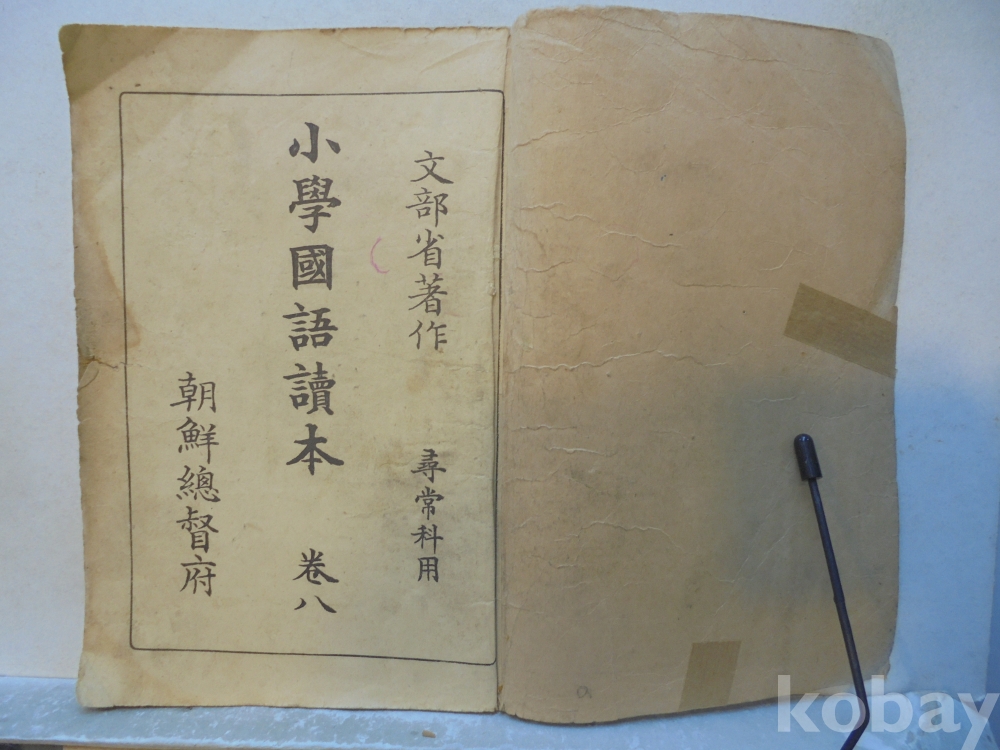 文部省著作 尋常科用
小學國語讀本 卷八
朝鮮總督府
kobay